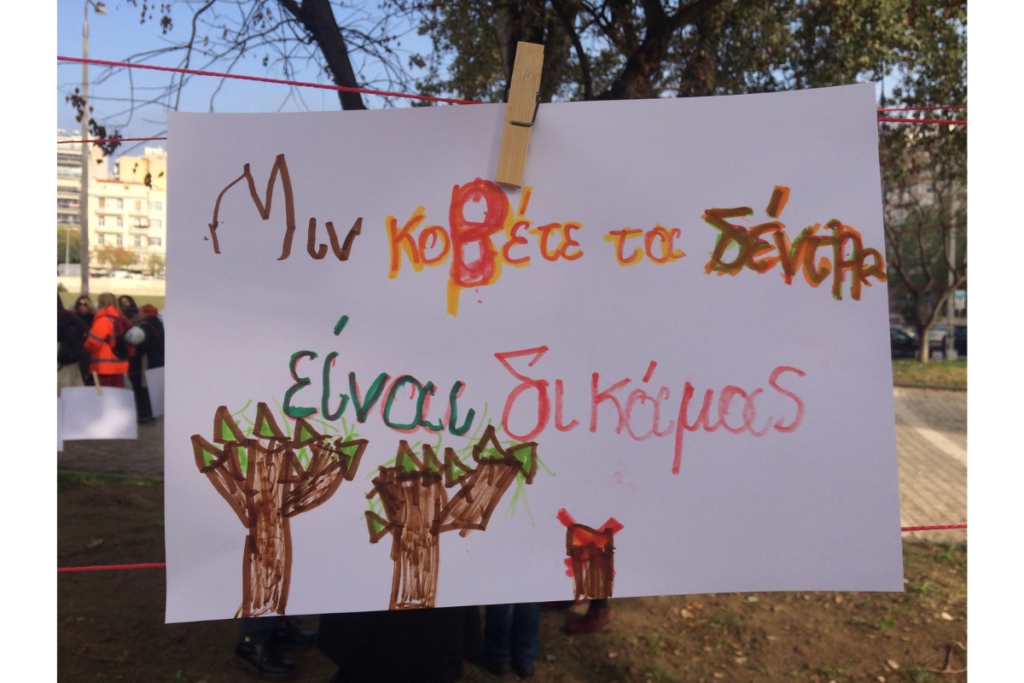 Μιν κοβέτε τα δέντρα
είναι δικάμας